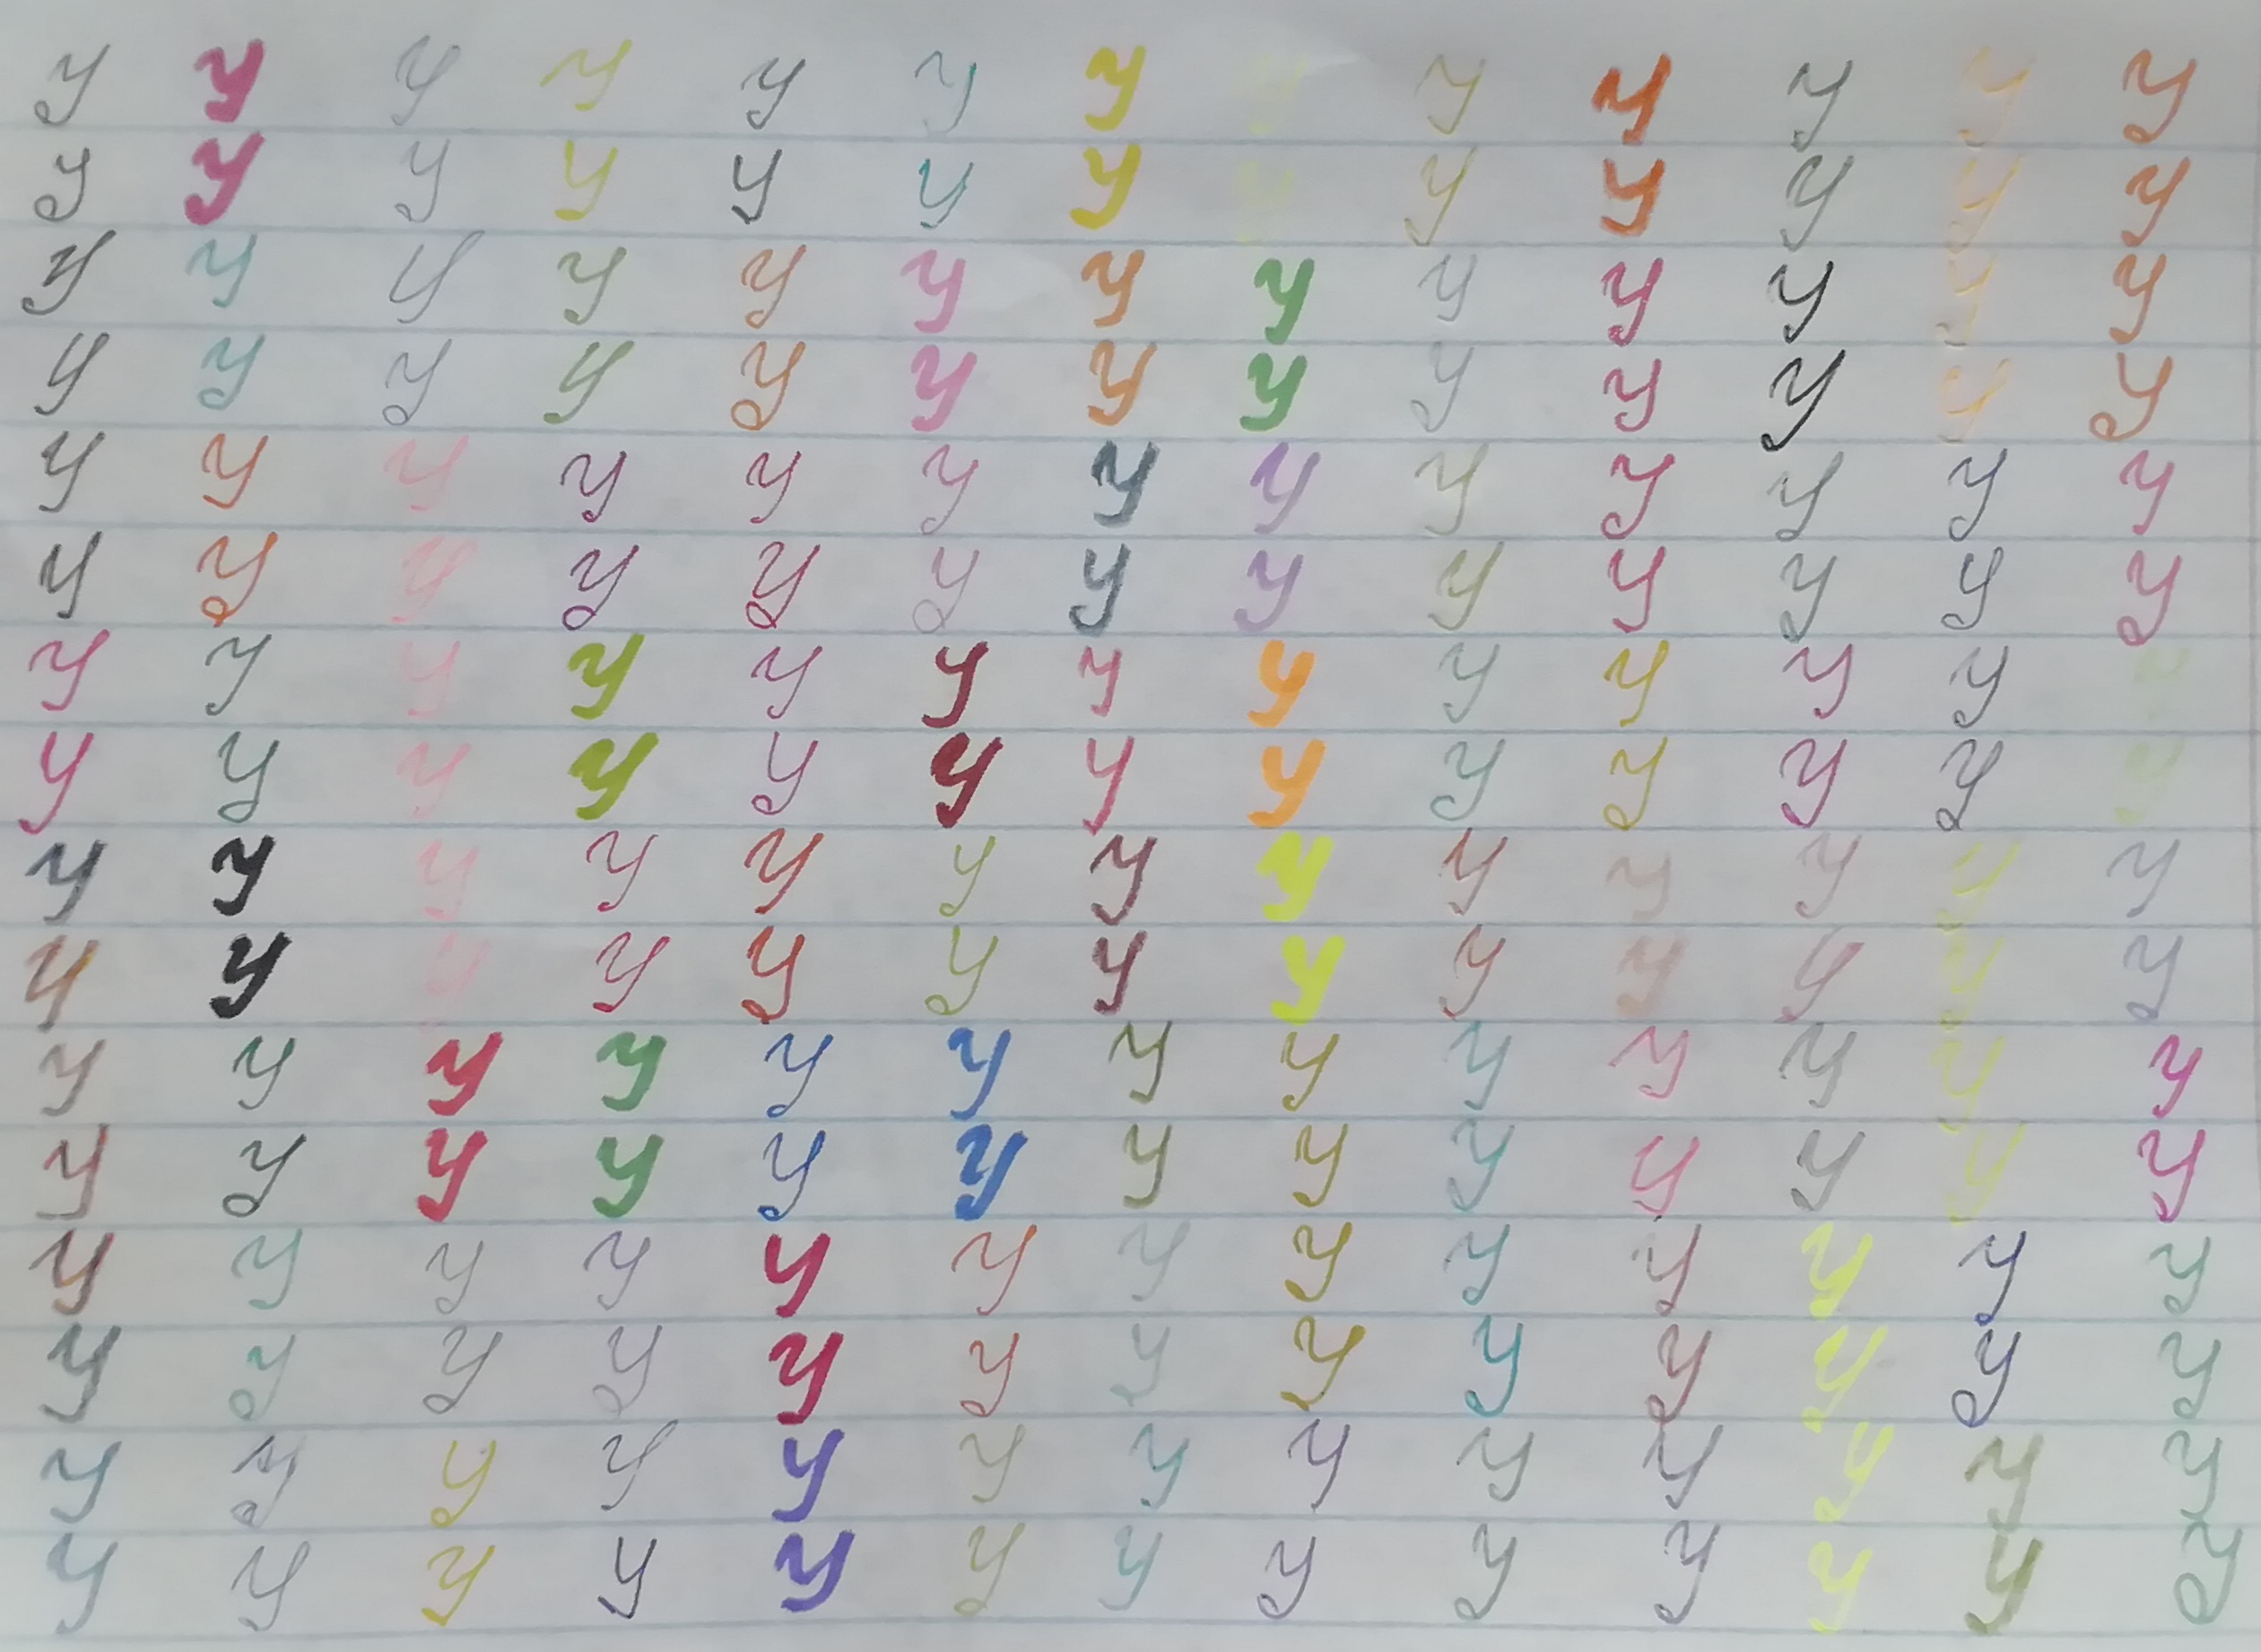 y y y y y y y y y y y y y
y y y y y y y y y y y y y
y y y y y y y y y y y y y
y y y y y y y y y y y y y
y y y y y y y y y y y y y
y y y y y y y y y y y y y
y y y y y y y y y y y y y
y y y y y y y y y y y y y
y y y y y y y y y y y y y
y y y y y y y y y y y y y
y y y y y y y y y y y y y
y y y y y y y y y y y y y
y y y y y y y y y y y y y
y y y y y y y y y y y y y
y y y y y y y y y y y y y
y y y y y y y y y y y y y